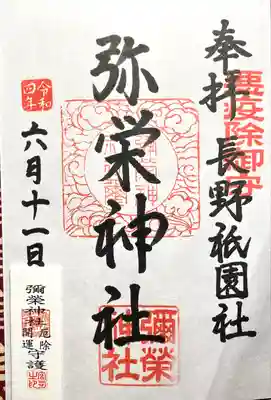 奉拝 長野祇園社
疫除御守
弥栄神社
彌榮神社
令和四年
六月十一日
彌榮神社
厄除
開運
守護